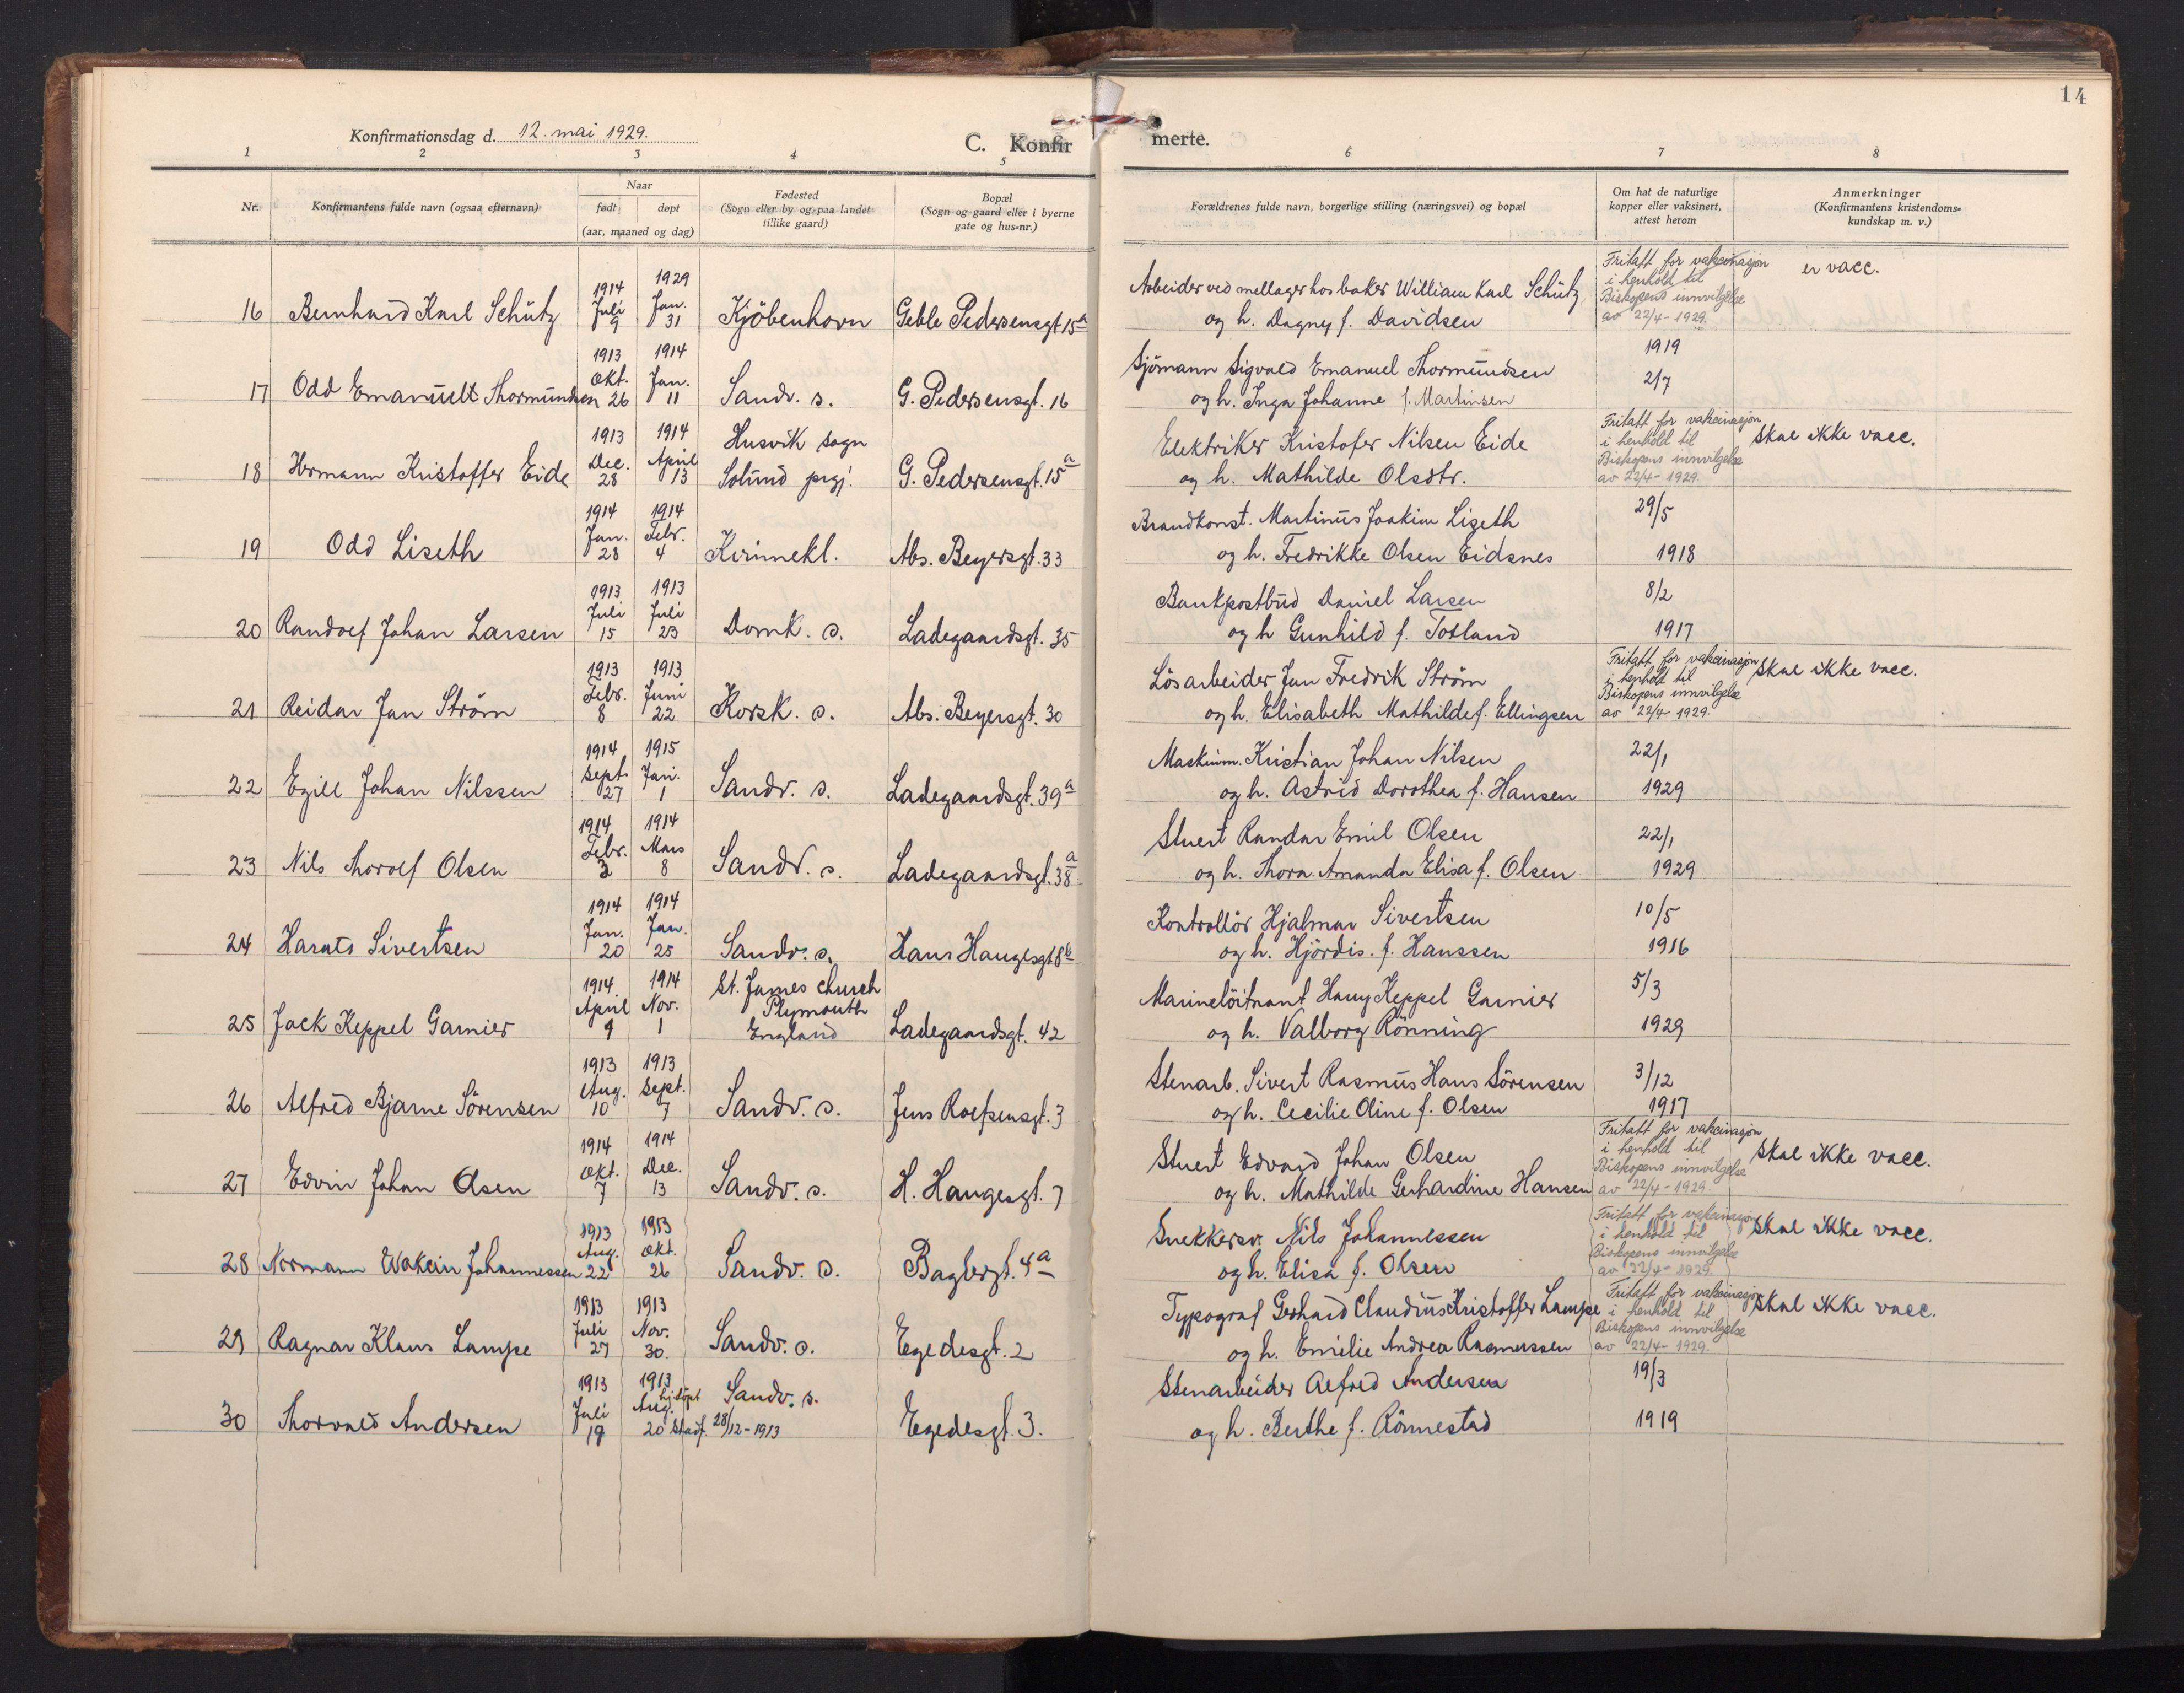 14
Konfirmationsdag d. 12. mai 1929.
C. Konfirmerte.
1 2 3 4 5 6 7 8
Nr.
Konfirmantens fulde navn (ogsaa efternavn)
Naar
født døpt
(aar, maaned og dag)
Fødested
(Sogn eller by og paa landet
tillike gaard)
Bopæl
(Sogn og gaard eller i byerne
gate og hus=nr.)
Forældrenes fulde navn, borgerlige stilling (næringsvei) og bopæl
Om hat de naturlige
kopper eller vaksinert,
attest herom
Anmerkninger
(Konfirmantens kristendoms=
kundskap m. v.)
16 Bernhard Karl Schütz 1914 Juli 9 1929 Jan. 31 Kjöbenhavn Geble Pedersensgt. 15a
Arbeider ved mellager hos baker William Karl Schütz
og h. Dagny f. Davidsen
Fritatt for vakcinasjon
i henhold til
Biskopens innvilgelse
av 22/4-1929.
er vacc.
17 Odd Emanuelt Thormundsen 1913 Okt. 26 1914 Jan. 11 Sandv. s. G. Pedersensgt. 16
Sjömann Sigvald Emanuel Thormundsen
og h. Inga Johanne f. Martinsen
1919
2/7
18 Hermann Kristoffer Eide 1913 Dec. 28 1914 April 13 Husvik sogn
Solund prgj. G. Pedersensgt. 15a
Elektriker Kristofer Nilsen Eide
og h. Mathilde Olsdtr.
Fritatt for vakcinasjon
i henhold til
Biskopens innvilgelse
av 22/4-1929.
Skal ikke vacc.
19 Odd Liseth 1914 Jan. 28 1914 Febr. 4 Kvinnekl. Abs. Beyersgt. 33
Brandkonst. Martinus Joakim Liseth
og h. Fredrikke Olsen Eidsnes
29/5
1918
20 Randolf Johan Larsen 1913 Juli 15 1913 Juli 23 Domk. s. Ladegaardsgt. 35
Bankpostbud Daniel Larsen
og h Gunhild f. Totland
8/2
1917
21 Reidar Jan Ström 1913 Febr. 8 1913 Juni 22 Korsk. s. Abs. Beyersgt. 30
Lösarbeider Jan Fredrik Ström
og h. Elisabeth Mathilde f. Ellingsen
Fritatt for vakcinasjon
i henhold til
Biskopens innvilgelse
av 22/4-1929.
Skal ikke vacc.
22 Egill Johan Nilssen 1914 Sept. 27 1915 Jan. 1 Sandv. s. Ladegaardsgt. 39a
Maskinm. Kristian Johan Nilsen
og h. Astrid Dorothea f. Hansen
22/1
1929
23 Nils Thorolf Olsen 1914 Febr. 3 1914 Mars 8 Sandv. s. Ladegaardsgt. 38a
Stuert Randar Emil Olsen
og h. Thora Amanda Elisa f. Olsen
22/1
1929
24 Harats Sivertsen 1914 Jan. 20 1914 Jan. 25 Sandv. s. Hans Haugesgt 8b
Kontrollör Hjalmar Sivertsen
og h. Hjördis. f. Hanssen
10/5
1916
25 Jack Keppel Garnier 1914 April 9 1914 Nov. 1 St. James church
Plymouth
England Ladegaardsgt. 42
Marinelöitnant Harry Keppel Garnier
og h. Valborg Rönning
5/3
1929
26 Alfred Bjarne Sörensen 1913 Aug. 10 1913 Sept. 7 Sandv. s. Jens Rolfsensgt. 3
Stenarb. Sivert Rasmus Hans Sörensen
og h. Cecilie Oline f. Olsen
3/12
1917
27 Edvin Johan Olsen 1914 Okt. 7 1914 Dec. 13 Sandv. s. H. Haugesgt. 7
Stuert Edvard Johan Olsen
og h. Mathilde Gerhardine Hansen
Fritatt for vakcinasjon
i henhold til
Biskopens innvilgelse
av 22/4-1929.
Skal ikke vacc.
28 Normann Johannessen 1913 Aug. 22 1913 Okt. 26 Sandv. s. Baglergt. 4a
Snekkersv. Nils Johannessen
og h. Elisa f. Olsen
Fritatt for vakcinasjon
i henhold til
Biskopens innvilgelse
av 22/4-1929.
Skal ikke vacc.
29 Ragnar Klaus Lampe 1913 Juli 27 1913 Nov. 30. Sandv. s. Egedesgt. 2
Typograf Gerhard Claudius Kristoffer Lampe
og h. Emilie Andrea Rasmussen
Fritatt for vakcinasjon
i henhold til
Biskopens innvilgelse
av 22/4-1929.
Skal ikke vacc.
30 Thorvald Andersen 1913 Juli 19 1913 Aug. hjdöpt 20 Stadf. 28/12-1913 Sandv. s. Egedesgt. 3.
Stenarbeider Alfred Andersen
og h. Berthe f. Rönnestad
19/3
1919